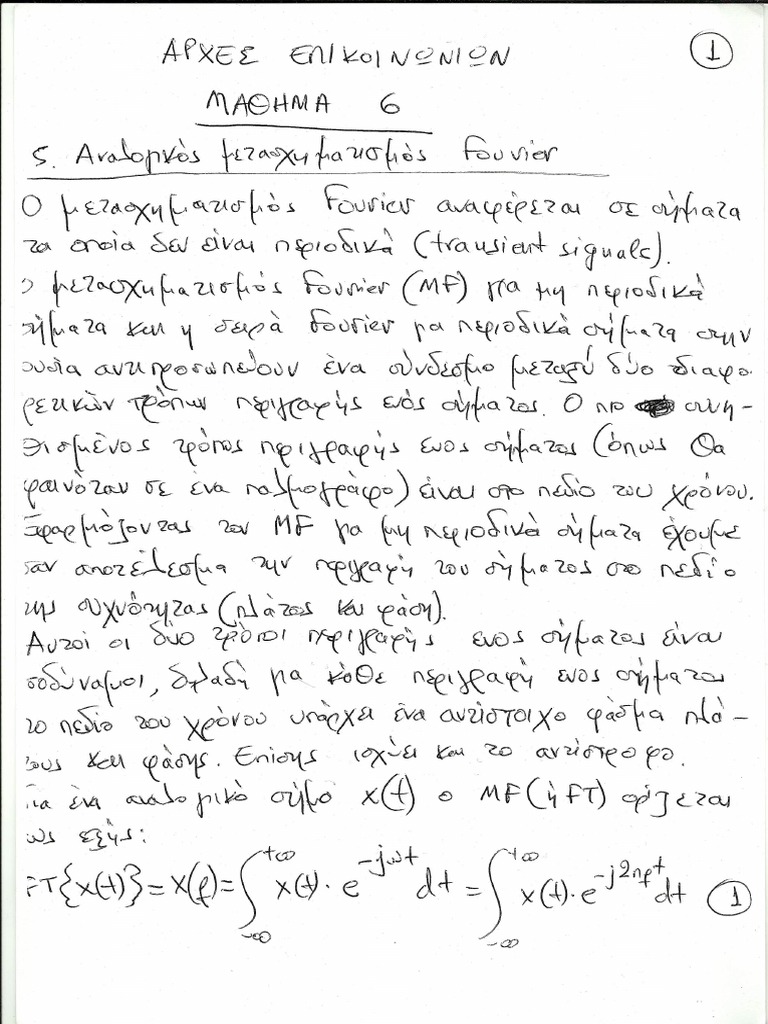 ΑΡΧΕΣ ΕΠΙΚΟΙΝΩΝΙΩΝ
1
ΜΑΘΗΜΑ 6
5. Αναλογικός μετασχηματισμός Fourier
Ο μετασχηματισμός Fourier αναφέρεται σε σήματα
τα οποία δεν είναι περιοδικά (transient signals).
Ο μετασχηματισμός Fourier (MF) για μη περιοδικά
σήματα και η σειρά Fourier για περιοδικά σήματα στην
ουσία αντιπροσωπεύουν ένα σύνδεσμο μεταξύ δύο διαφο-
ρετικών τρόπων περιγραφής ενός σήματος. Ο πιο συνη-
θισμένος τρόπος περιγραφής ενος σήματος (όπως θα
φαινόταν σε ένα παλμογράφο) είναι στο πεδίο του χρόνου.
Εφαρμόζοντας τον MF για μη περιοδικά σήματα έχουμε
σαν αποτέλεσμα την περιγραφή του σήματος στο πεδίο
της συχνότητας (πλάτος και φάση).
Αυτοί οι δύο τρόποι περιγραφής ενος σήματος είναι
ισοδύναμοι, δηλαδή για κάθε περιγραφή ενος σήματος
στο πεδίο του χρόνου υπάρχει ένα αντίστοιχο φάσμα πλά-
τους και φάσης. Επίσης ισχύει και το αντίστροφο.
Για ένα αναλογικό σήμα x(t) ο MF (ή FT) ορίζεται
ως εξής:
FT{x(t)} = X(f) = ∫_{-∞}^{+∞} x(t)·e^{-jωt} dt = ∫_{-∞}^{+∞} x(t)·e^{-j2πft} dt (1)